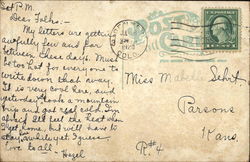 Sat P.M.
Dear Folks:-
My letters are getting
awfully few and far
between these days. Most
too hot for everyone to
write down that away.
It is very cool here, and
yesterday took a mountain
trip and got real cold. I'm
afraid I'll feel the heat when
I get home, but will have to
stay awhile yet I guess.
Love to all.
Hazel
POST
COLO.
Miss Mabelle
Parsons
Kans.
R#4